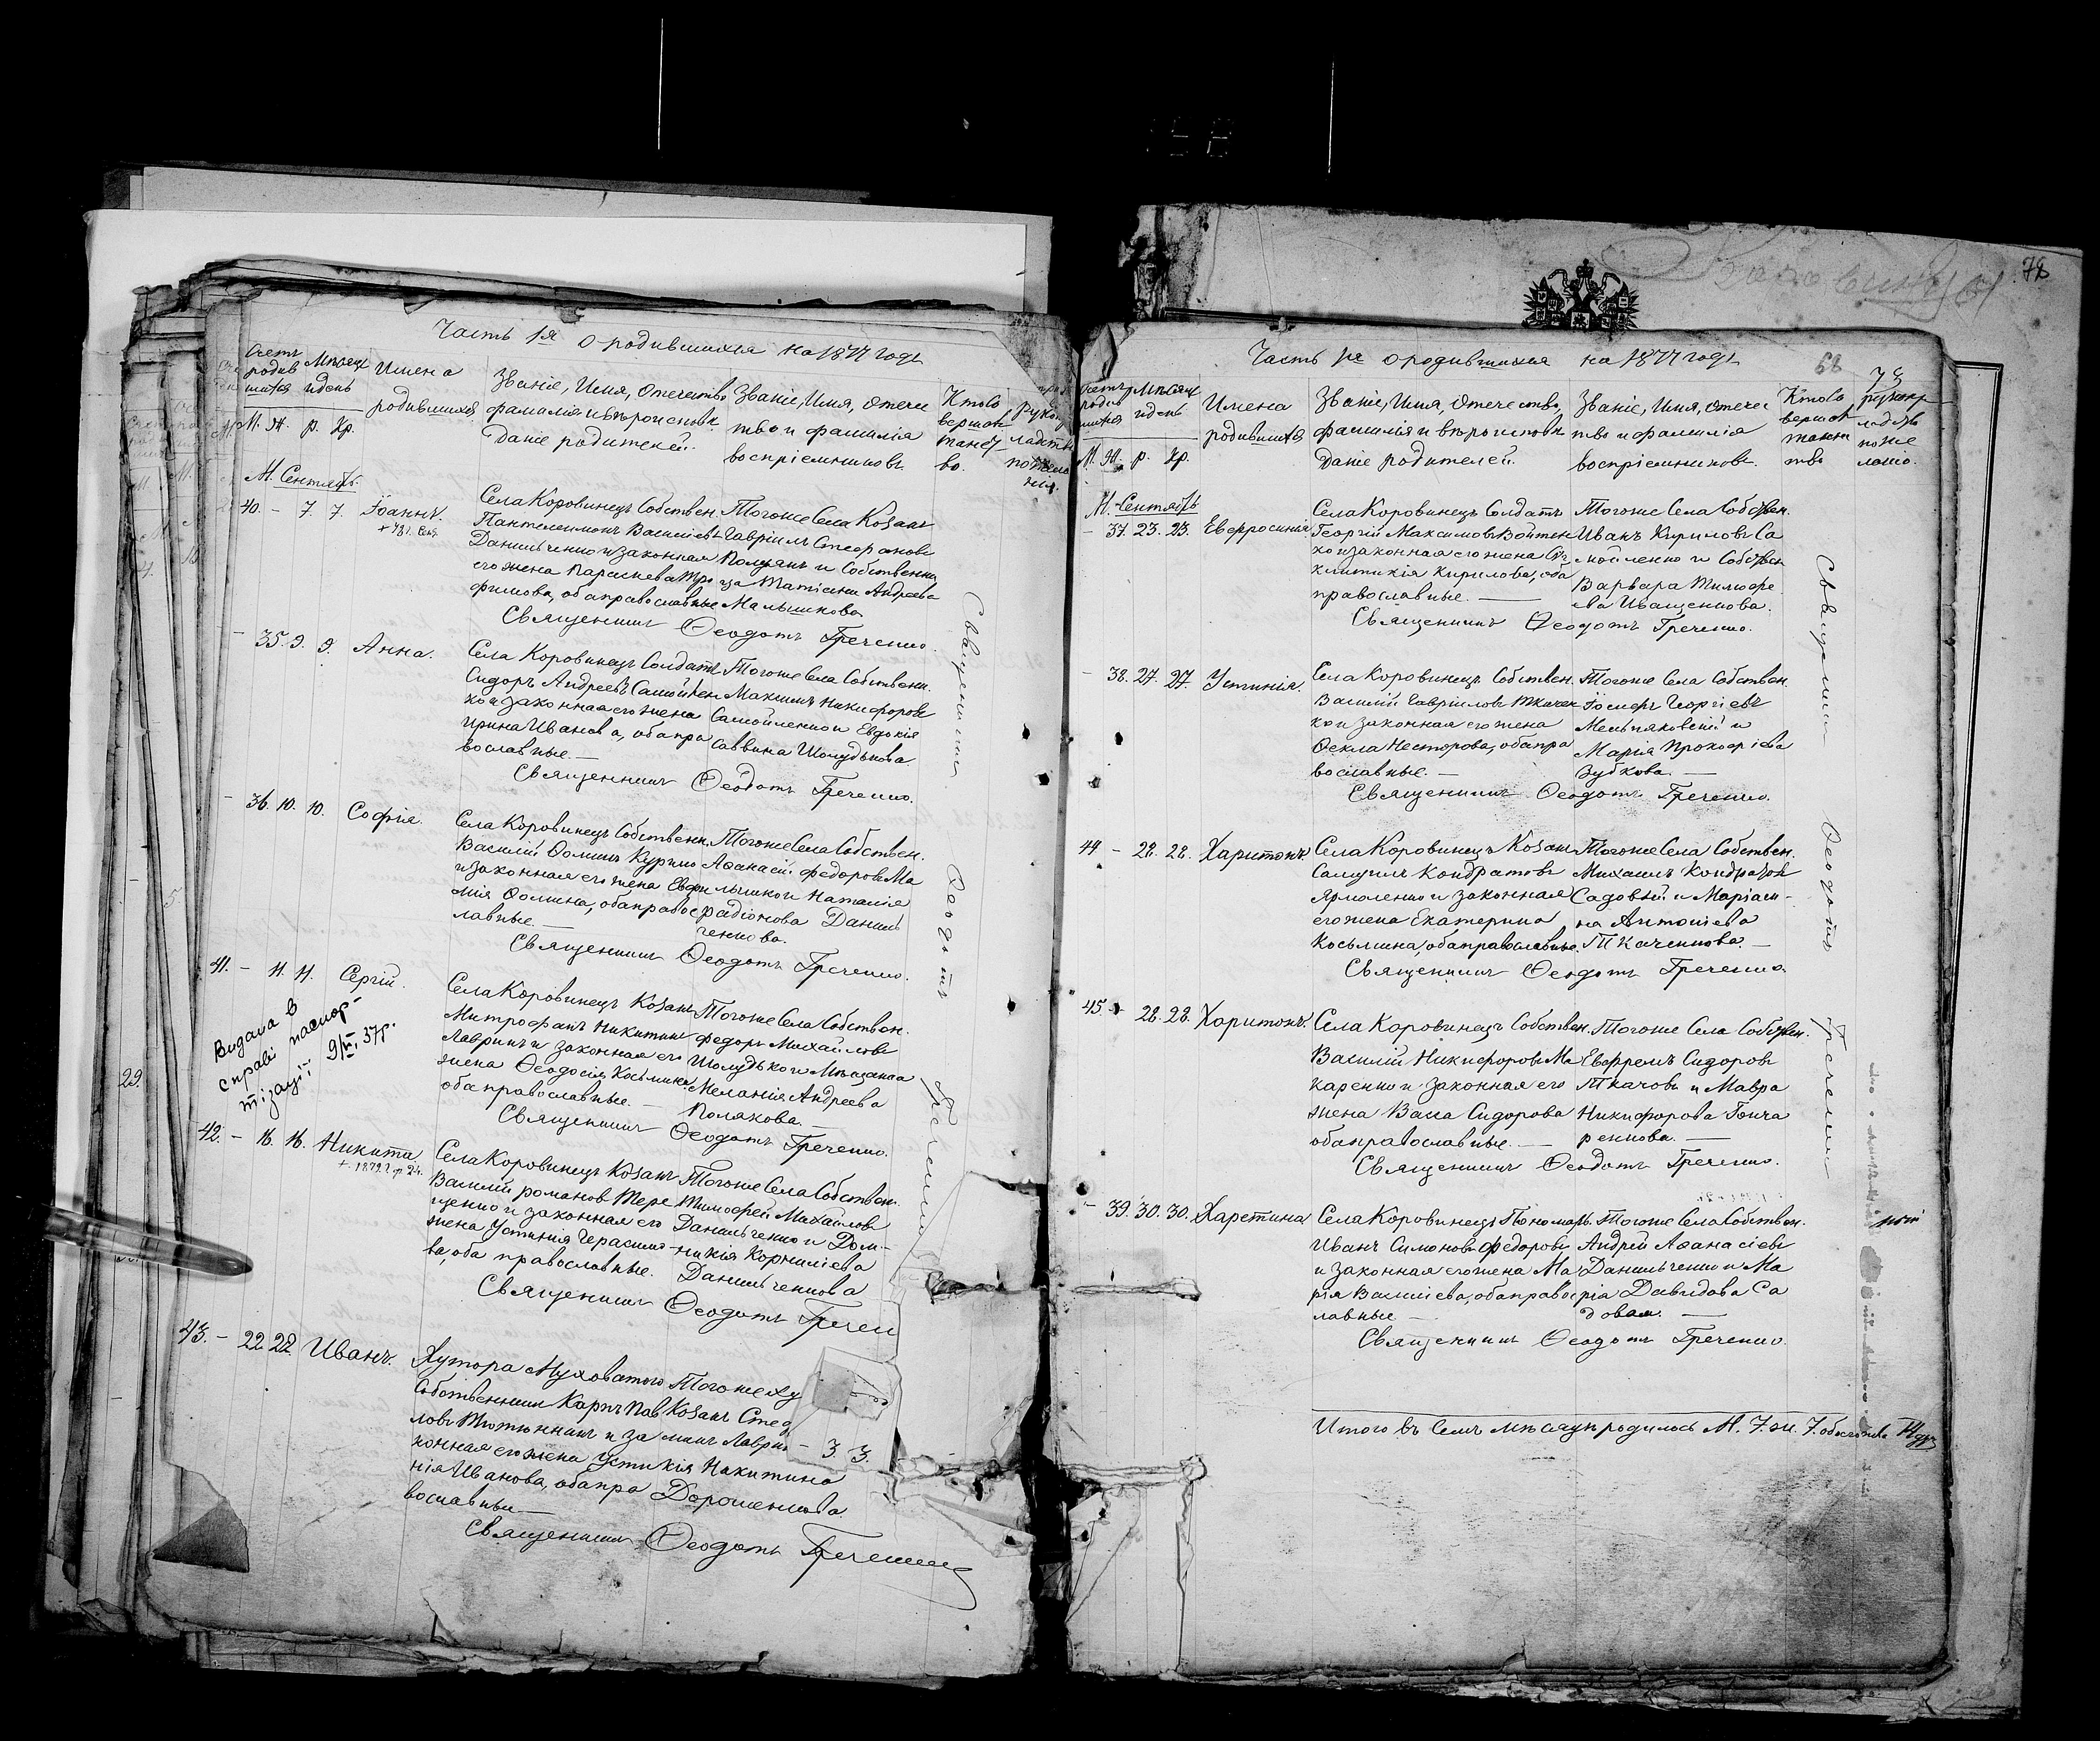 Часть 1я о родившихся на 1877 годъ
Счетъ родившихся
Мѣсяцъ и день
Имена родившихся
Званіе, Имя, Отечество фамилія и вѣроисповѣданіе родителей.
Званіе, Имя, Отечество и фамилія воспріемниковъ.
Кто совершалъ таинство.
М. Ж. р. Кр.
М. Сентябрь.
40. – 7. 7. Іоаннъ.
Села Коровинецъ Собствен.
Пантелеимонъ Василіевъ
Данильченко и законная
его жена Параскева Тро
фимова, оба православные
Тогоже Села Козакъ
Гавріилъ Стефановъ
Полуянъ и Собственни
ца Татіана Андреева
Малышкова
Священникъ Ѳеодотъ Греченко.
– 35. 9. 9. Анна.
Села Коровинецъ Солдатъ
Сидоръ Андреевъ Самойлен
ко и законная его жена
Ирина Иванова, оба пра
вославные. –
Тогоже Села Собственн.
Максимъ Никифоровъ
Самойленко и Евдокія
Саввина Шолудькова
Священникъ Ѳеодотъ Греченко.
– 36. 10. 10. Софія.
Села Коровинецъ Собственн.
Василій Ѳоминъ Курило
и законная его жена Евфи
мія Ѳомина, оба правос
лавные. –
Тогоже Села Собствен.
Аѳанасій Федоровъ Ма
лышко и Наталія
Радіонова Даниль
ченкова.
Священникъ Ѳеодотъ Греченко.
41. – 11. 11. Сергій.
Видана в
справі паспор-
тізації 9/IV, 37р.
Села Коровинецъ Козакъ
Митрофанъ Никитинъ
Лавринъ и законная его
жена Ѳеодосія Косьмина
оба православные. –
Тогоже Села Собствен.
Федоръ Михайловъ
Шолудько и Мѣщанка
Меланія Андреева
Полякова. –
Священникъ Ѳеодотъ Греченко.
42. – 16. 16. Никита
Села Коровинецъ Козакъ
Василій Романовъ Тере
щенко и законная его
жена Устинія Герасимо
ва, оба православные.
Тогоже Села Собствен.
Тимоѳей Михайловъ
Данильченко и Дом-
никія Корниліева
Данильченкова
Священникъ Ѳеодотъ Гречен
43. – 22 22. Иванъ.
Хутора Муховатого
Собственникъ Карпъ Пав
ловъ Тютюнникъ и за
конная его жена Усти
нія Иванова, оба пра
вославные –
Тогоже Ху
Козакъ Стеф
– 3. 3.
кія Никитина
Дорошенкова
Священникъ Ѳеодотъ Греченко
Священникъ Ѳеодотъ Греченко
29.
78
Часть 1я о родившихся на 1877 годъ
68
78
Счетъ родившихся
Мѣсяцъ и день
Имена родившихся
Званіе, Имя, Отечество, фамилія и вѣроисповѣданіе родителей.
Званіе, Имя, Отечество и фамилія воспріемниковъ.
Кто совершалъ таинство
М. Ж. р. Кр.
М. Сентябрь
– 37. 23. 23. Евфросинія
Села Коровинецъ Солдатъ
Георгій Максимовъ Войтен
ко и законная его жена Син
клитикія Кирилова, оба
православные. –
Тогоже Села Собствен.
Иванъ Кириловъ Са
мойленко и Собствен
Варвара Тимофе
ева Иващенкова.
Священникъ Ѳеодотъ Греченко.
– 38. 27. 27. Устинія.
Села Коровинецъ Собствен.
Василій Гавріиловъ Ткачен
ко и законная его жена
Ѳекла Несторова, оба пра
вославные. –
Тогоже Села Собствен.
Іосифъ Георгіевъ
Мельняковскій и
Марія Прокофіева
Зубкова. –
Священникъ Ѳеодотъ Греченко.
44 – 28. 28. Харитонъ.
Села Коровинецъ Козакъ
Самуилъ Кондратовъ
Ярмоленко и законная
его жена Екатерина
Косьмина, оба православные.
Тогоже Села Собствен.
Михаилъ Кондратовъ
Садовый и Маріам-
на Антонiева
Ткаченкова. –
Священникъ Ѳеодотъ Греченко.
45. – 28. 28. Харитонъ.
Села Коровинецъ Собствен.
Василій Никифоровъ Ма
каренко и законная его
жена Васса Сидорова
оба православные. –
Тогоже Села Собствен.
Евфремъ Сидоровъ
Ткачовъ и Мавра
Никифорова Гонча
ренкова. –
Священникъ Ѳеодотъ Греченко.
– 39. 30. 30. Харетина
Села Коровинецъ Пономарь
Иванъ Симоновъ Федоровъ
и законная его жена Ма
рія Василіева, оба правос
лавные –
Тогоже Села Собствен.
Андрей Аѳанасіевъ
Данильченко и Ма
рія Давидова Са
довая. –
Священникъ Ѳеодотъ Греченко.
Священникъ Ѳеодотъ Греченко
Итого въ Семъ мѣсяцѣ родилось М. 7. ж. 7. обоего пола 14 душ